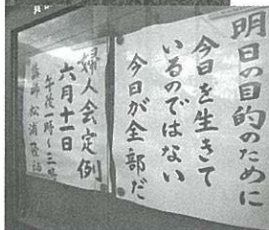 明日の目的のために
今日を生きて
いるのではない
今日が全部だ
婦人会定例
六月十一日
午後一時〜三時
講師 松浦